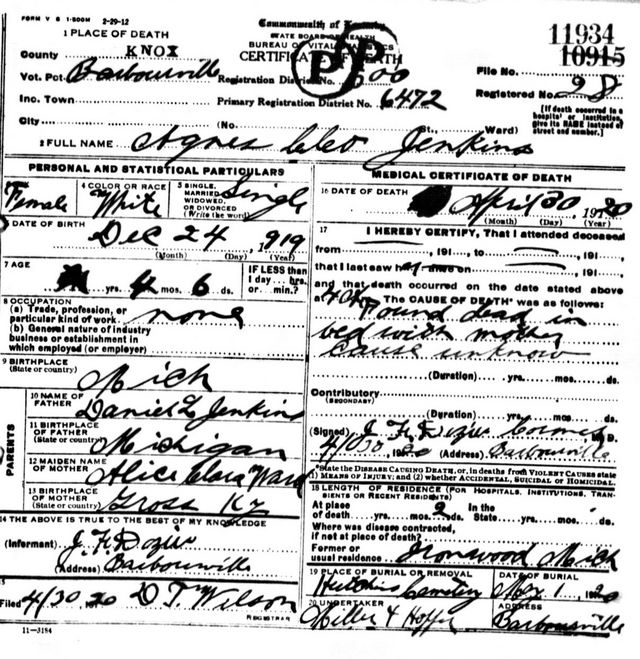 FORM V S 1-500M 2-29-12
Commonwealth of Kentucky
STATE BOARD OF HEALTH
BUREAU OF VITAL STATISTICS
CERTIFICATE OF DEATH
11934
10915
1 PLACE OF DEATH
County KNOX
Vot. Pct. Barbourville
Registration District No. 600
File No.
Inc. Town
Primary Registration District No. 6472
Registered No. 98
City (No. St., Ward)
[If death occurred in a hospital or institution, give its NAME instead of street and number.]
2 FULL NAME Agnes Cleo Jenkins
PERSONAL AND STATISTICAL PARTICULARS
Female
4 COLOR OR RACE White
5 SINGLE, MARRIED, WIDOWED, OR DIVORCED (Write the word) Single
DATE OF BIRTH Dec 24, 1919
(Month) (Day) (Year)
7 AGE
yrs. 4 mos. 6 ds.
IF LESS than 1 day... hrs. or min.?
8 OCCUPATION
(a) Trade, profession, or particular kind of work none
(b) General nature of industry business or establishment in which employed (or employer)
9 BIRTHPLACE
(State or country) Mich
PARENTS
10 NAME OF FATHER Daniel L Jenkins
11 BIRTHPLACE OF FATHER (State or country) Michigan
12 MAIDEN NAME OF MOTHER Alice Clara Ward
13 BIRTHPLACE OF MOTHER (State or country) Gross Ky
14 THE ABOVE IS TRUE TO THE BEST OF MY KNOWLEDGE
(Informant)
(Address) Barbourville
Filed 4/30 1920 D T. Wilson
REGISTRAR
11-3184
MEDICAL CERTIFICATE OF DEATH
16 DATE OF DEATH
April 30, 1920
(Month) (Day) (Year)
17 I HEREBY CERTIFY, That I attended deceased
from , 191..., to , 191...,
that I last saw h alive on , 191...,
and that death occurred on the date stated above
at The CAUSE OF DEATH* was as follows:
Found dead in
bed with mother
cause unknow
(Duration) yrs. mos. ds.
Contributory
(SECONDARY)
(Duration) yrs. mos. ds.
(Signed) Coroner M.D.
4/030, 1920 (Address) Barbourville
*State the DISEASE CAUSING DEATH, or, in deaths from VIOLENT CAUSES state (1) MEANS OF INJURY; and (2) whether ACCIDENTAL, SUICIDAL or HOMICIDAL.
18 LENGTH OF RESIDENCE (FOR HOSPITALS, INSTITUTIONS, TRANSIENTS OR RECENT RESIDENTS)
At place of death yrs. 2 mos. ds. In the State yrs. mos. ds.
Where was disease contracted, if not at place of death?
Former or usual residence Ironwood Mich
19 PLACE OF BURIAL OR REMOVAL Hutchins Cemetery
DATE OF BURIAL May 1, 1920
20 UNDERTAKER Miller & Hopper
ADDRESS Barbourville